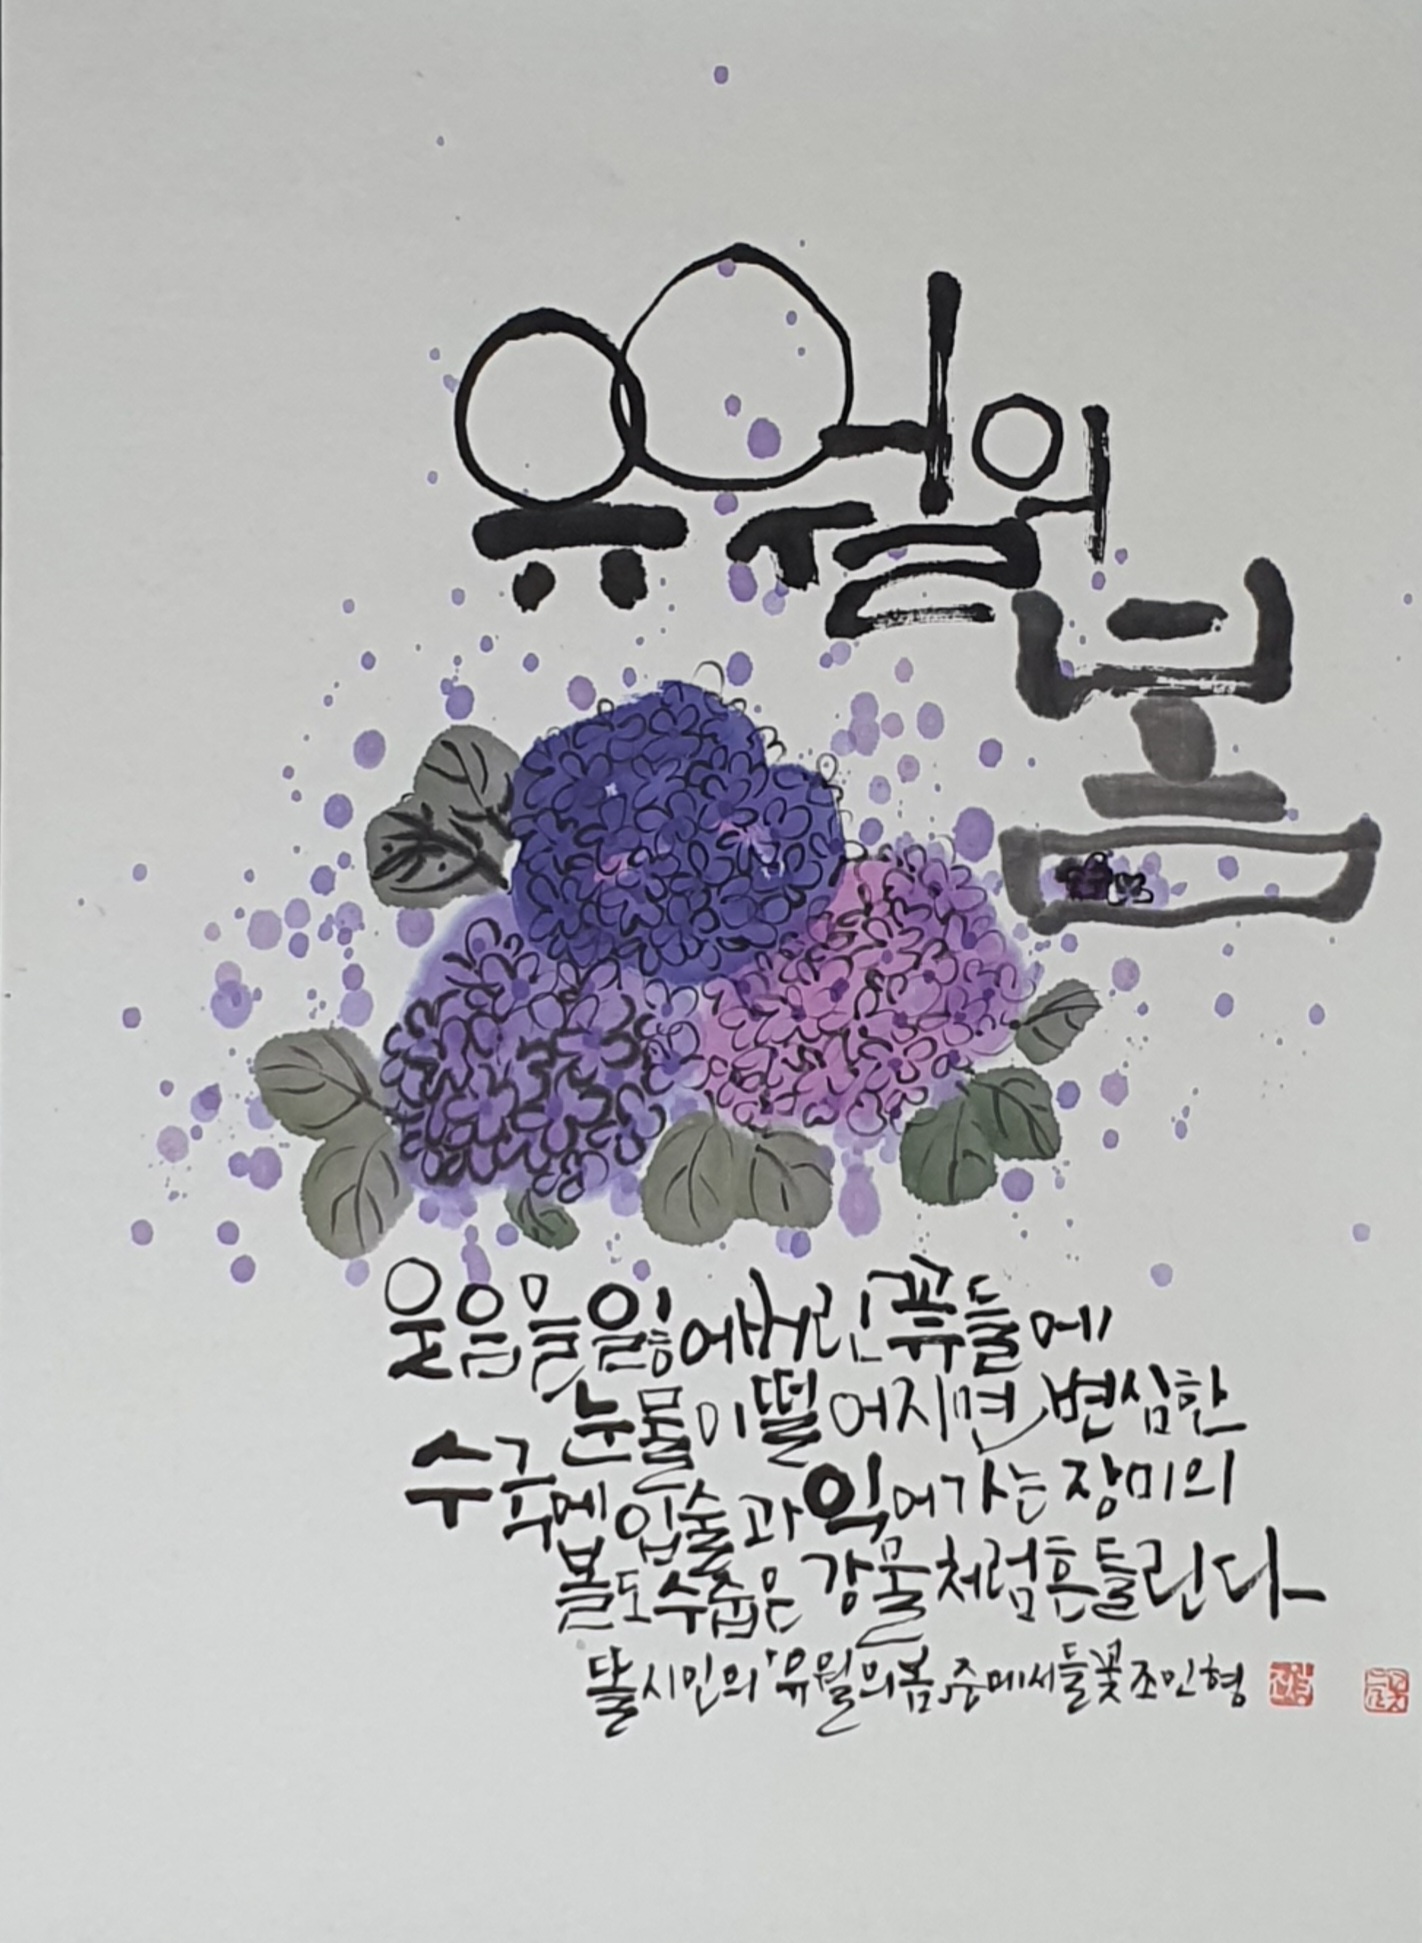 유월의
봄
웃음을 잃어버린 꽃들에
눈물이 떨어지면 변심한
수국에 입술과 익어가는 장미의
볼도 수줍은 강물처럼 흔들린다
달 시인의 '유월의 봄' 중에서 들꽃 조인형